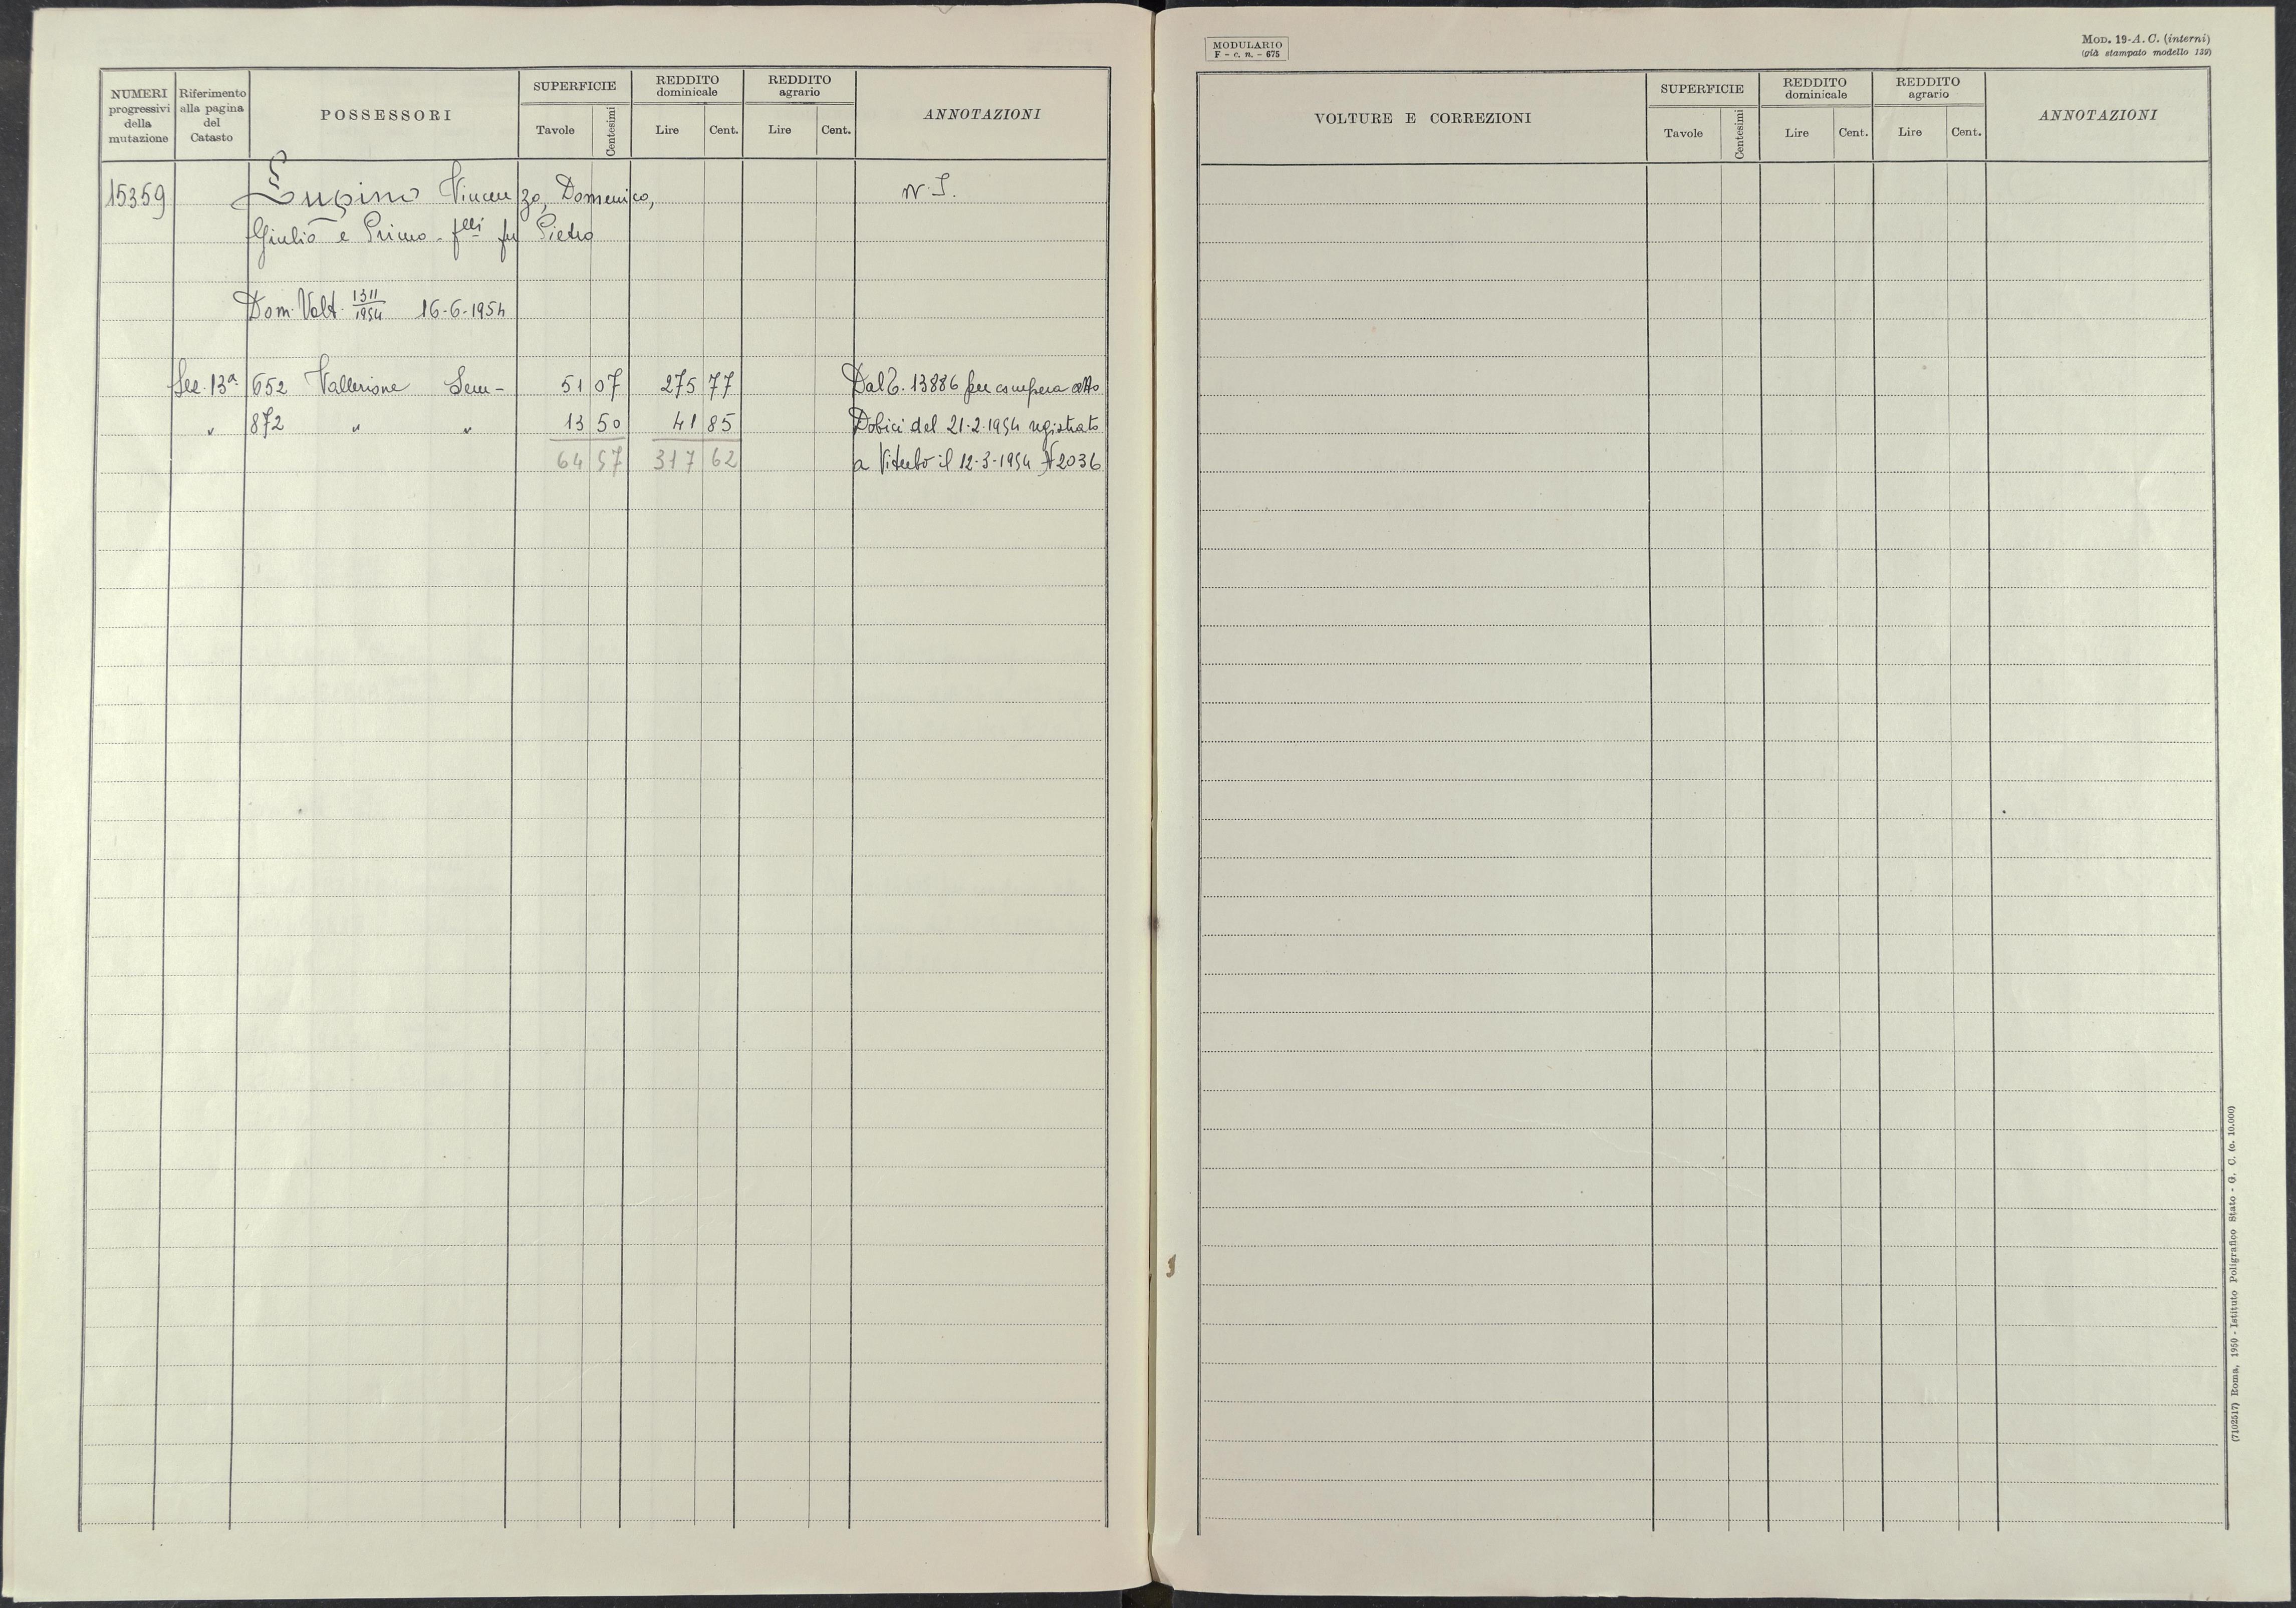 NUMERI progressivi della mutazione
Riferimento alla pagina del Catasto
POSSESSORI
SUPERFICIE
Tavole
Centesimi
REDDITO dominicale
Lire
Cent.
REDDITO agrario
Lire
Cent.
ANNOTAZIONI
15359 Lupino Vincenzo, Domenico, N. I.
Giulio e Primo - flli fu Pietro
Dom. Volt. 1311/1954 16-6-1954
Sez. 13ª 652 Vallerione Sem- 51 07 275 77 Dal C. 13886 per compera atto
" 872 " " 13 50 41 85 Dobici del 21-2-1954 registrato
64 57 317 62 a Viterbo il 12-3-1954 N 2036
MODULARIO
F - c. n. - 675
MOD. 19-A. C. (interni)
(già stampato modello 139)
VOLTURE E CORREZIONI
SUPERFICIE
Tavole
Centesimi
REDDITO dominicale
Lire
Cent.
REDDITO agrario
Lire
Cent.
ANNOTAZIONI
(7102517) Roma, 1950 - Istituto Poligrafico Stato - G. C. (c. 10.000)